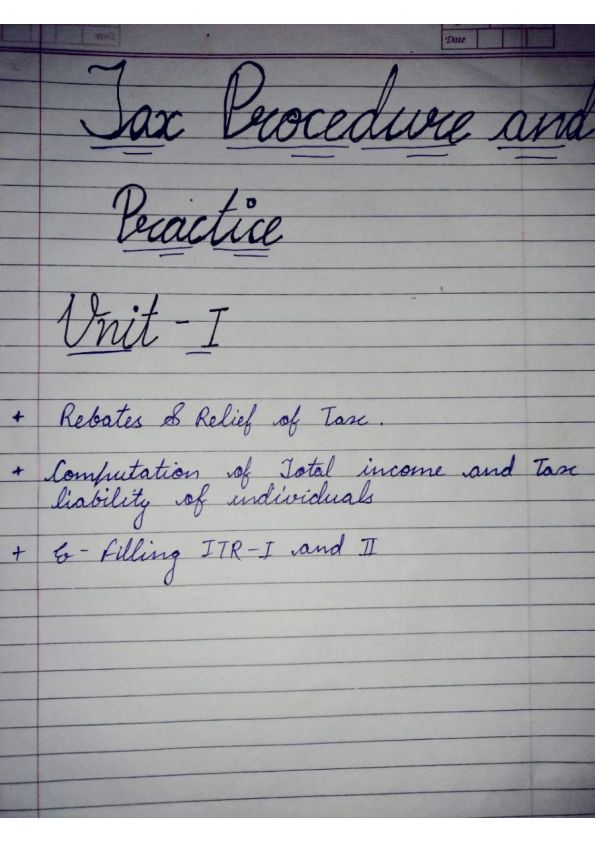 Date
Tax Procedure and
Practice
Unit - I
+ Rebates & Relief of Tax.
+ Computation of Total income and Tax
liability of individuals
+ E- Filling ITR-I and II